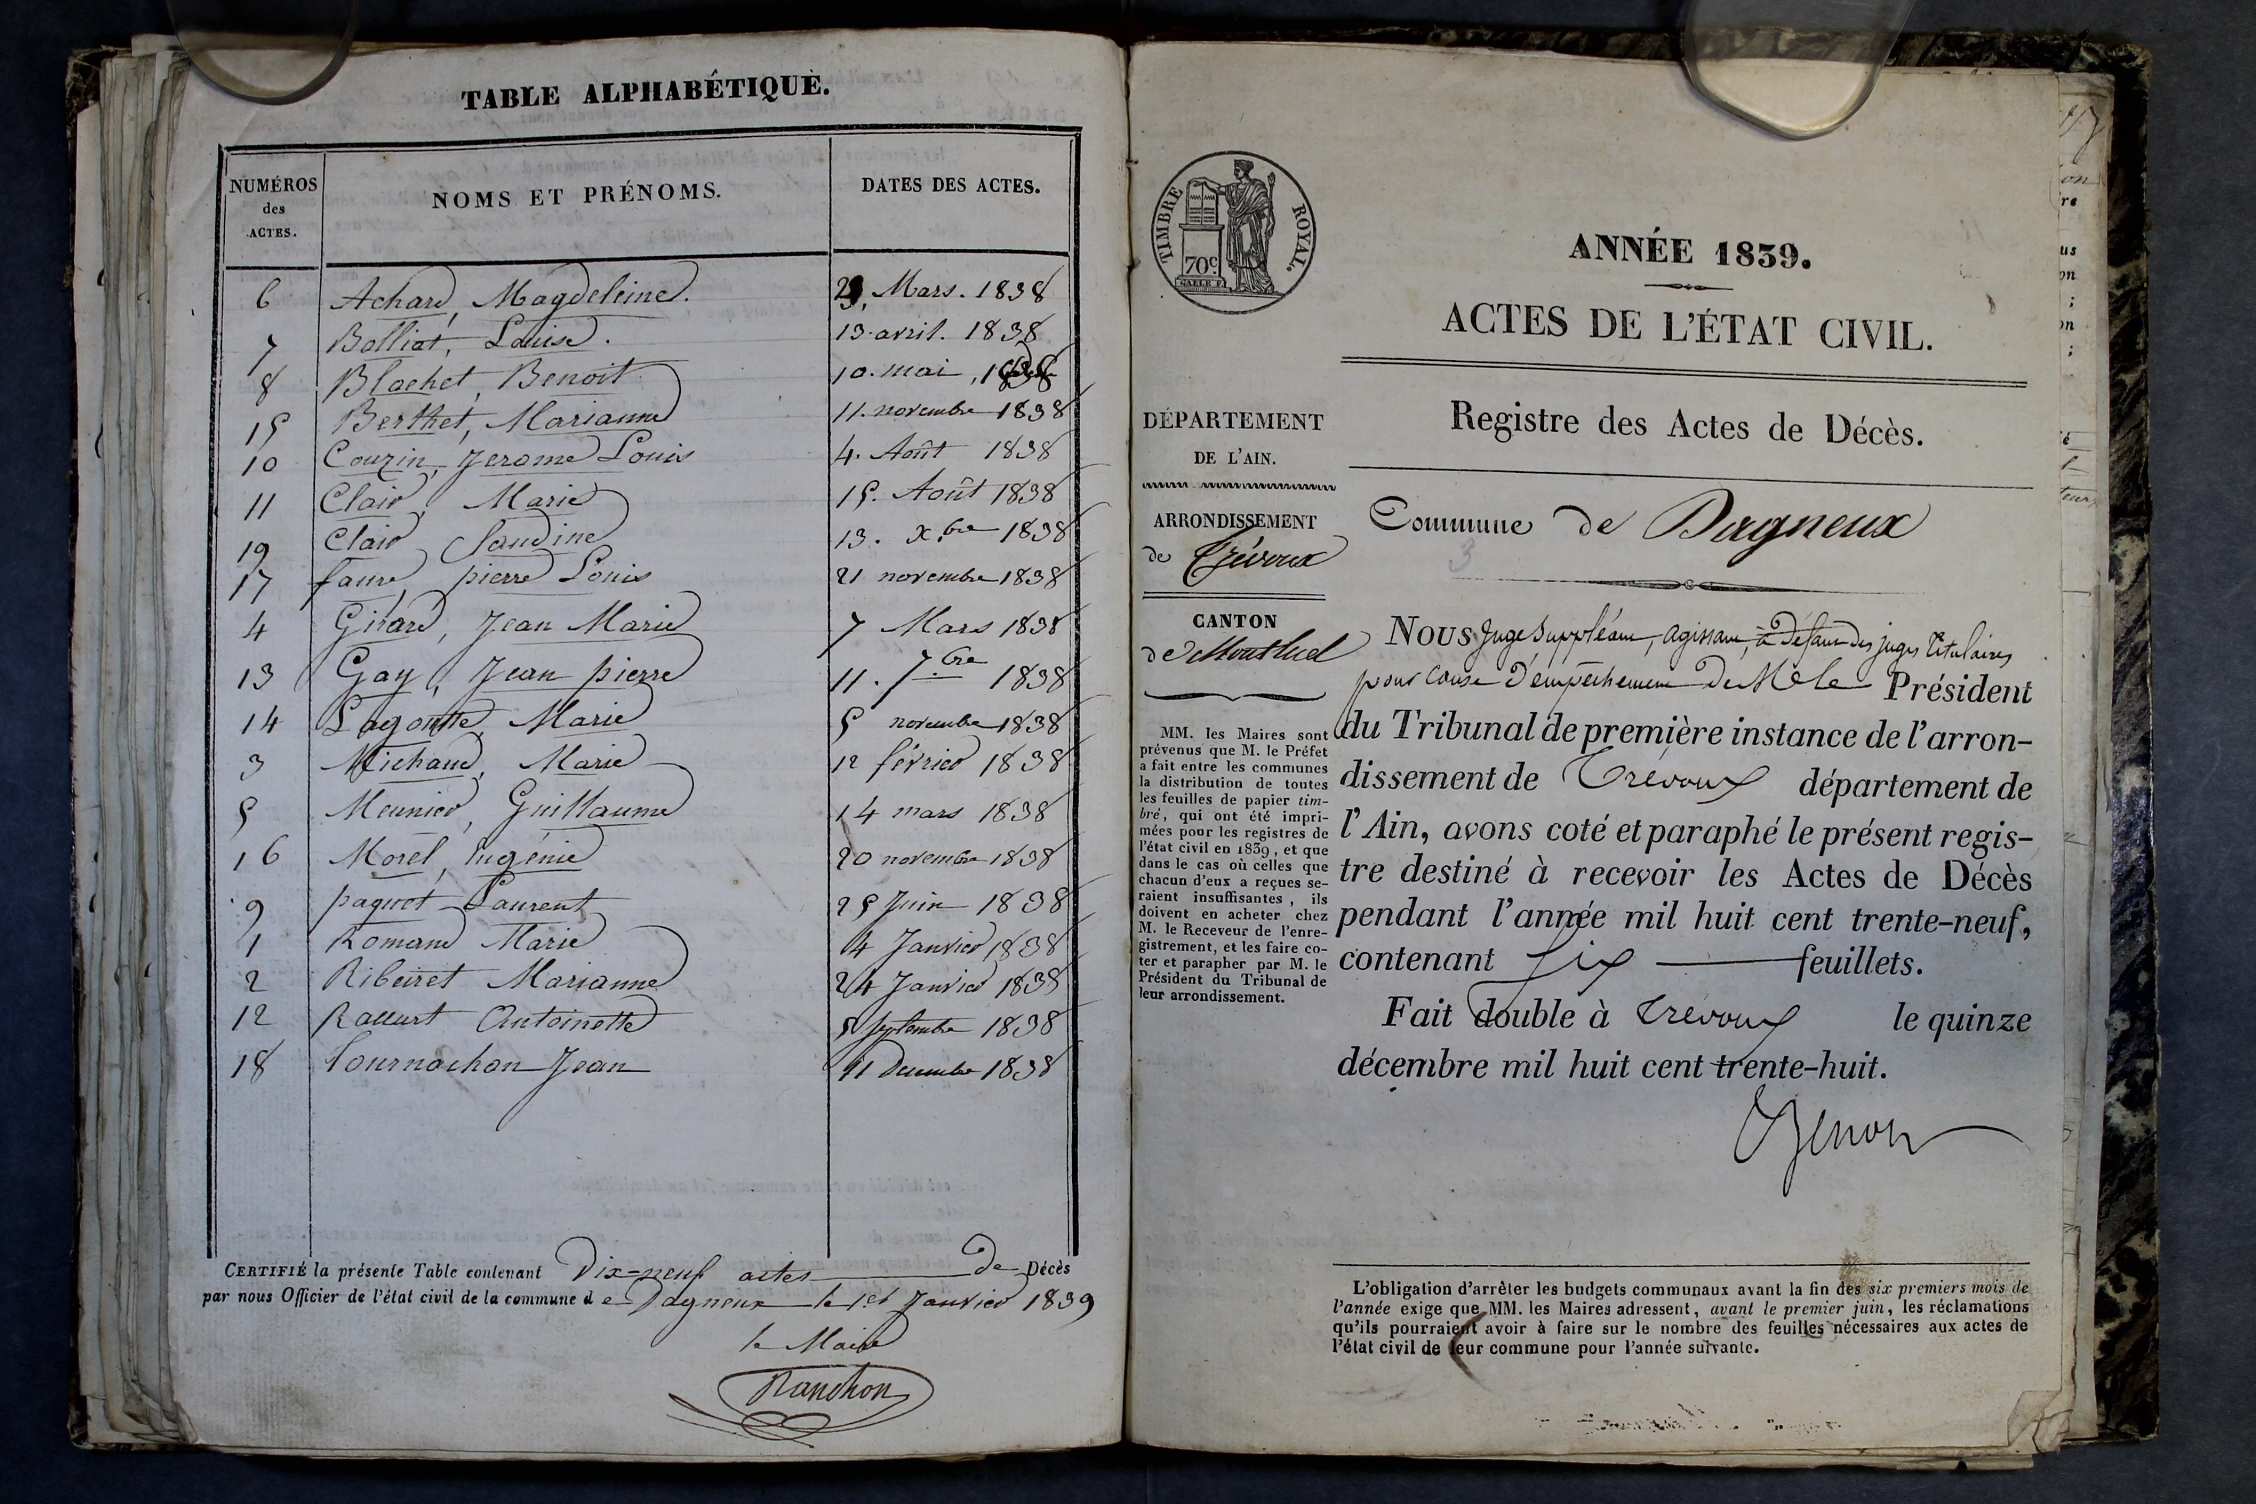 TABLE ALPHABÉTIQUE.
NUMÉROS des ACTES. NOMS ET PRÉNOMS. DATES DES ACTES.
6 Achard, Magdeleine. 23, Mars. 1838
7 Bolliat, Louise. 13. avril. 1838
8 Blachet, Benoit 10. mai, 1838
15 Berthet, Marianne 11. novembre 1838
10 Couzin, Jerome Louis 4. Août 1838
11 Clair, Marie 15. Août 1838
19 Clair, Claudine 13. xbre 1838
17 faure, pierre Louis 21 novembre 1838
4 Girard, Jean Marie 7 Mars 1838
13 Gay, Jean pierre 11. 7bre 1838
14 Lagoutte, Marie 5 novembre 1838
3 Michaud, Marie 12 février 1838
5 Meunier, Guillaume 14 mars 1838
16 Morel, Eugénie 20 novembre 1838
9 paquet Laurent 25 Juin 1838
1 Romand Marie 4 Janvier 1838
2 Ribeiret Marianne 24 Janvier 1838
12 Raccurt Antoinette 5 septembre 1838
18 Tournachon Jean 11 Decembre 1838
CERTIFIÉ la présente Table contenant Dix-neuf actes de Décès
par nous Officier de l'état civil de la commune de Dagneux le 1er Janvier 1839
le Maire
Ranchon
TIMBRE ROYAL.
70c.
ANNÉE 1839.
ACTES DE L'ÉTAT CIVIL.
DÉPARTEMENT
DE L'AIN.
ARRONDISSEMENT
de Trévoux
CANTON
de Montluel
MM. les Maires sont
prévenus que M. le Préfet
a fait entre les communes
la distribution de toutes
les feuilles de papier tim-
bré, qui ont été impri-
mées pour les registres de
l'état civil en 1839, et que
dans le cas où celles que
chacun d'eux a reçues se-
raient insuffisantes, ils
doivent en acheter chez
M. le Receveur de l'enre-
gistrement, et les faire co-
ter et parapher par M. le
Président du Tribunal de
leur arrondissement.
Registre des Actes de Décès.
Commune de Dagneux
3
NOUS Juge Suppléant, agissant, à Défaut des juges titulaires
pour Cause D'empêchement De M. le Président
du Tribunal de première instance de l'arron-
dissement de Trévoux département de
l'Ain, avons coté et paraphé le présent regis-
tre destiné à recevoir les Actes de Décès
pendant l'année mil huit cent trente-neuf,
contenant six feuillets.
Fait double à Trévoux le quinze
décembre mil huit cent trente-huit.
L'obligation d'arrêter les budgets communaux avant la fin des six premiers mois de
l'année exige que MM. les Maires adressent, avant le premier juin, les réclamations
qu'ils pourraient avoir à faire sur le nombre des feuilles nécessaires aux actes de
l'état civil de leur commune pour l'année suivante.